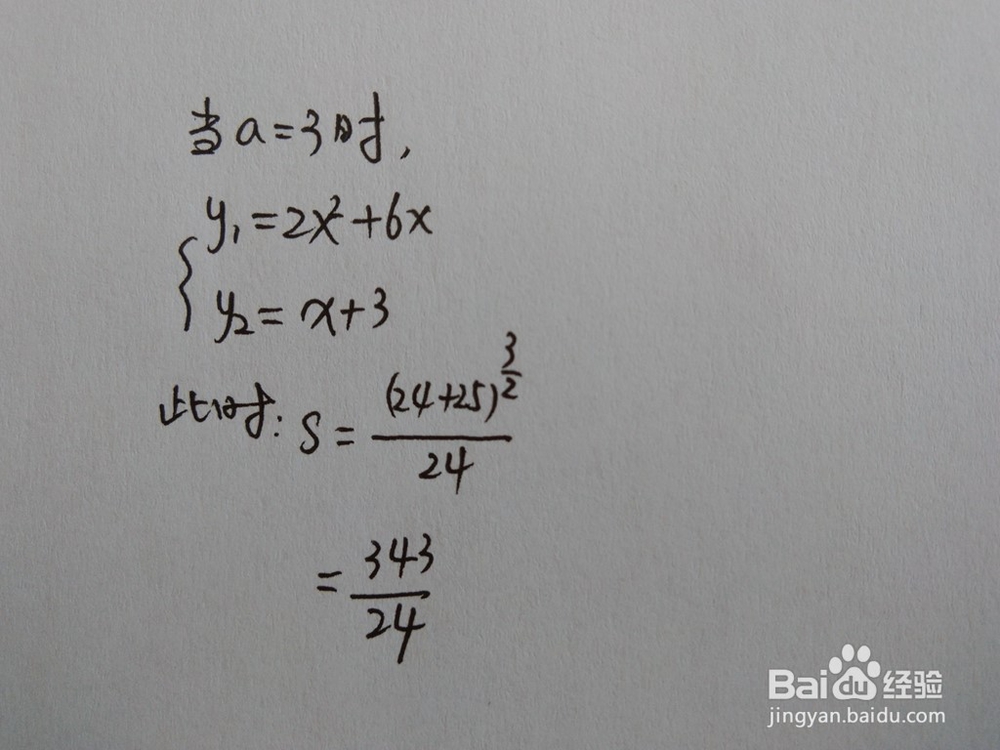 当a=3时,
y₁=2x²+6x
y₂=x+3
此时: S=(24+25)^(3/2)/24
=343/24
Baidu经验
jingyan.baidu.com